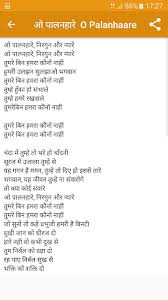 58% 17:27
ओ पालनहारे O Palanhaare
ओ पालनहारे, निरगुन और न्यारे
तुमरे बिन हमरा कौनों नाहीं
ओ पालनहारे, निरगुन और न्यारे
तुमरे बिन हमरा कौनों नाहीं
हमरी उलझन सुलझाओ भगवान
तुमरे बिन हमरा कौनों नाहीं
तुम्हे हुँका हो संभाले
तुम्हे हमरे रखवाले
तुमरेबिन हमरा कौनों नाहीं
तुमरे बिन हमरा कौनों नाहीं
तुमरे बिन हमरा कौनों नाहीं
चंदा में तुम्हे तो भरे हो चाँदनी
सूरज में उजाला तुम्हे से
यह गगन है मगन, तुम्हे तो दिए हो इससे तारे
भगवान, यह जीवन तुम्हे ना संवारोगे
तो क्या कोई संवारे
ओ पालनहारे, निरगुन और न्यारे
तुमरे बिन हमरा कौनों नाहीं
ओ पालनहारे, निरगुन और न्यारे
तुमरे बिन हमरा कौनों नाहीं
जो सुनो तो कहे प्रभुजी हमरी है बिनटी
दुखी जान को धीरज दो
हारे नही वो कभी दुख से
तुम निर्बल को रक्षा दो
रह पाए निर्बल सुख से
भक्ति को शक्ति दो